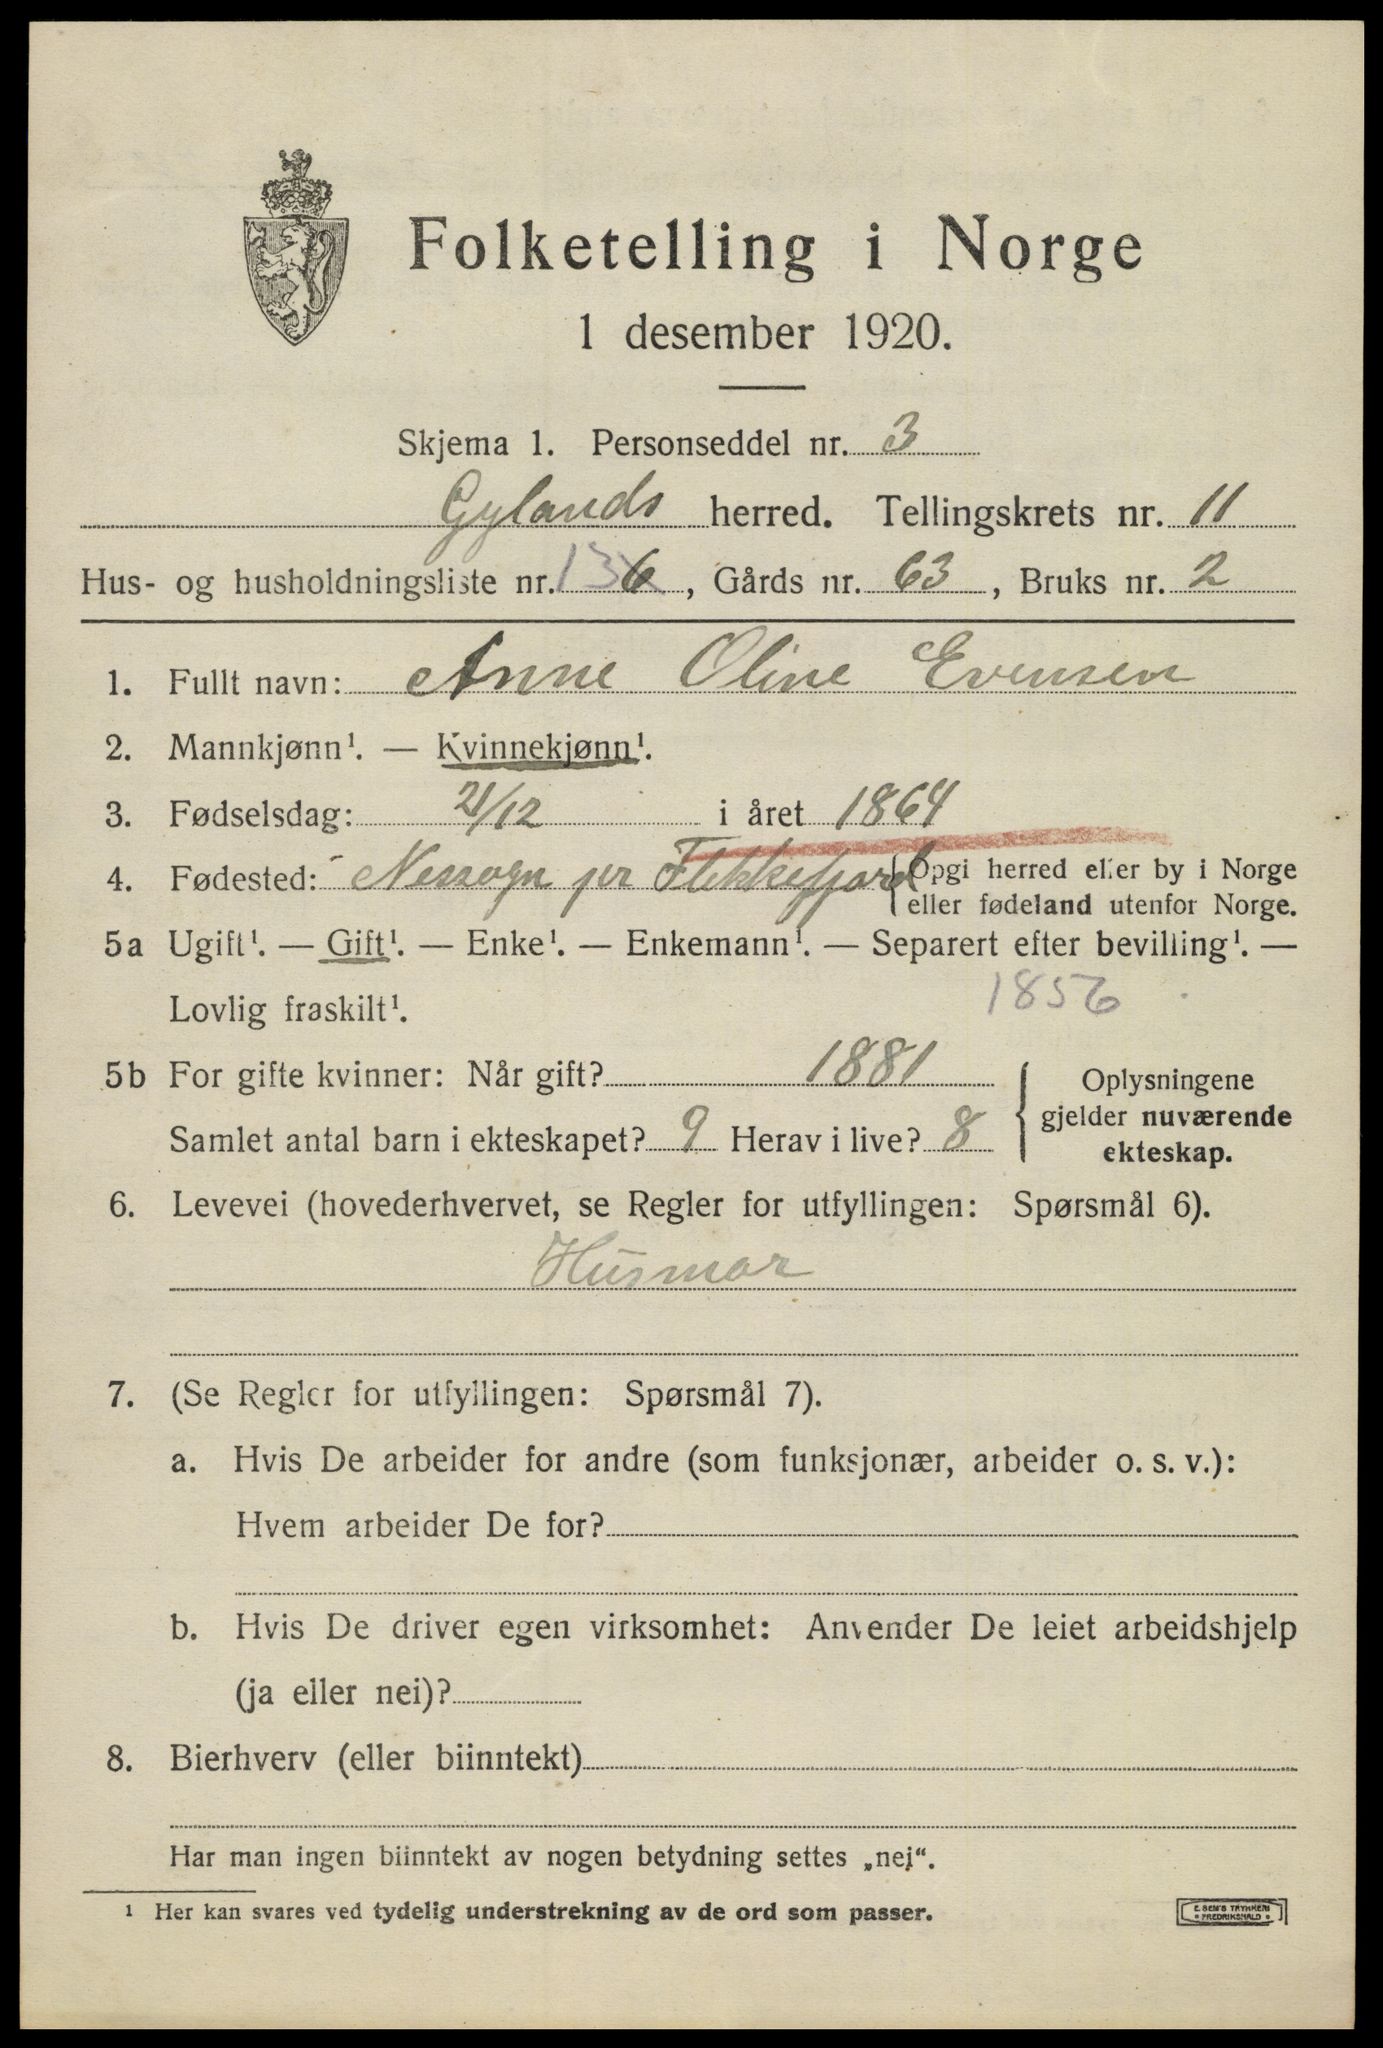 Folketelling i Norge
1 desember 1920.
Skjema 1. Personseddel nr. 3
Gylands herred. Tellingskrets nr. 11
Hus- og husholdningsliste nr. 13 6, Gårds nr. 63, Bruks nr. 2
1. Fullt navn: Anne Oline Evensen
2. Mannkjønn¹. — Kvinnekjønn¹.
3. Fødselsdag: 21/12 i året 1864
4. Fødested: Nessogn pr Flekkefjord {Opgi herred eller by i Norge
eller fødeland utenfor Norge.
5a Ugift¹. — Gift¹. — Enke¹. — Enkemann¹. — Separert efter bevilling¹. —
Lovlig fraskilt¹. 1856
5b For gifte kvinner: Når gift? 1881
Samlet antal barn i ekteskapet? 9 Herav i live? 8
{Oplysningene
gjelder nuværende
ekteskap.
6. Levevei (hovederhvervet, se Regler for utfyllingen: Spørsmål 6).
Husmor
7. (Se Regler for utfyllingen: Spørsmål 7).
a. Hvis De arbeider for andre (som funksjonær, arbeider o. s. v.):
Hvem arbeider De for?
b. Hvis De driver egen virksomhet: Anvender De leiet arbeidshjelp
(ja eller nei)?
8. Bierhverv (eller biinntekt)
Har man ingen biinntekt av nogen betydning settes „nei“.
¹ Her kan svares ved tydelig understrekning av de ord som passer.
E. SEM'S TRYKKERI
• FREDRIKSHALD •